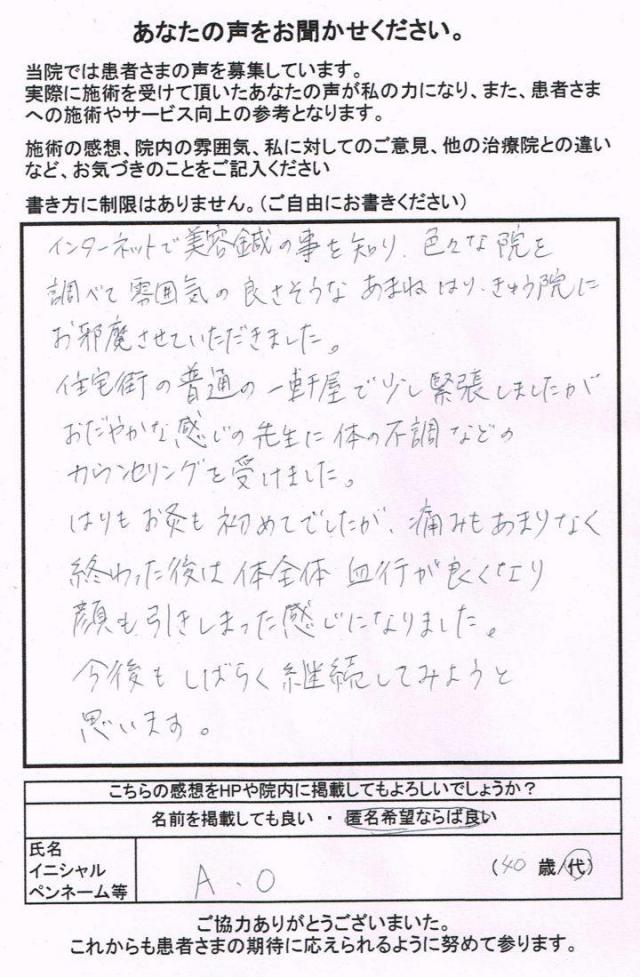 あなたの声をお聞かせください。
当院では患者さまの声を募集しています。
実際に施術を受けて頂いたあなたの声が私の力になり、また、患者さま
への施術やサービス向上の参考となります。
施術の感想、院内の雰囲気、私に対してのご意見、他の治療院との違い
など、お気づきのことをご記入ください
書き方に制限はありません。(ご自由にお書きください)
インターネットで美容鍼の事を知り、色々な院を
調べて雰囲気の良さそうな あまね はり・きゅう院に
お邪魔させていただきました。
住宅街の普通の一軒屋で少し緊張しましたが
おだやかな感じの先生に体の不調などの
カウンセリングを受けました。
はりもお灸も初めてでしたが、痛みもあまりなく
終わった後は体全体 血行が良くなり
顔も引きしまった感じになりました。
今後もしばらく継続してみようと
思います。
こちらの感想をHPや院内に掲載してもよろしいでしょうか?
名前を掲載しても良い ・ 匿名希望ならば良い
氏名
イニシャル
ペンネーム等
A.O
(40 歳/代)
ご協力ありがとうございまいた。
これからも患者さまの期待に応えられるように努めて参ります。